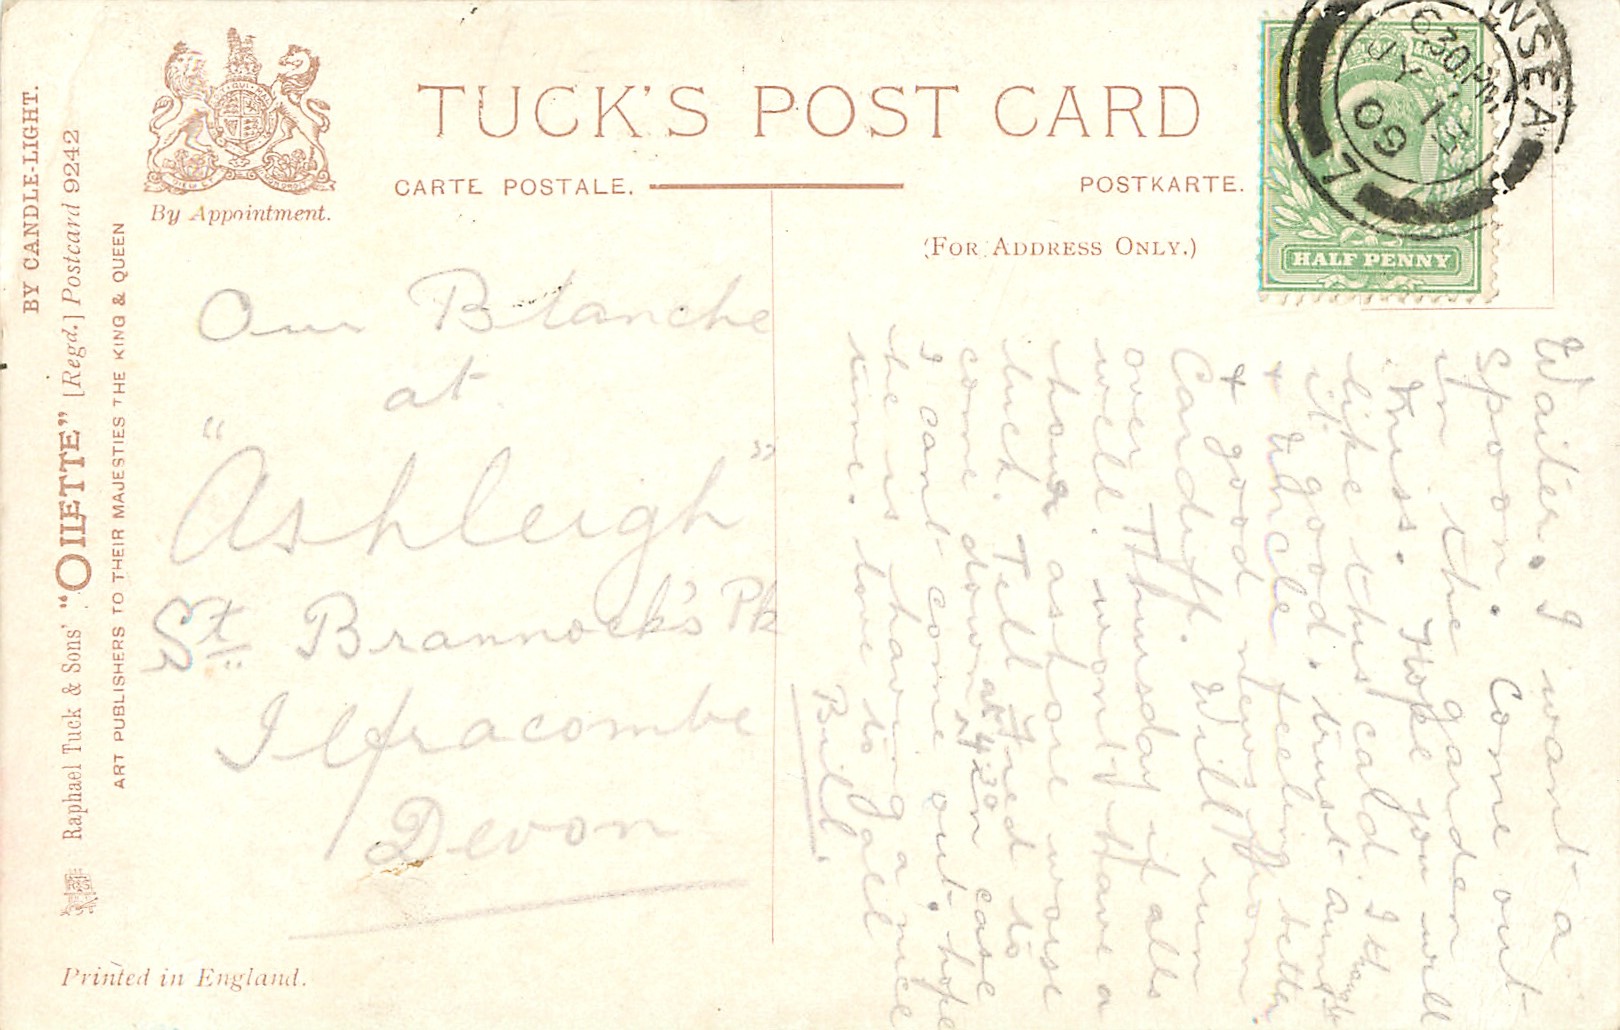 BY CANDLE-LIGHT.
Raphael Tuck & Sons' "OILETTE" [Regd.] Postcard 9242
ART PUBLISHERS TO THEIR MAJESTIES THE KING & QUEEN
By Appointment.
TUCK'S POST CARD
CARTE POSTALE.
POSTKARTE.
(FOR ADDRESS ONLY.)
NSEA
630PM
JY 13
09
HALF PENNY
Our Blanche
at
"Ashleigh"
St Brannock's Pk
Ilfracombe
Devon
Printed in England.
Waiter. I want a
spoon. Come out
in the garden
Miss. Hope you will
like this card. I thought
it good. trust Aunt
& Uncle feeling better
& good news from
Cardiff. Will run
over Thursday if alls
well. wont have a
hour ashore worse
luck. Tell Fred to
come down at 430 in case
I cant come out. hope
he is having a nice
time. love to all
Bill